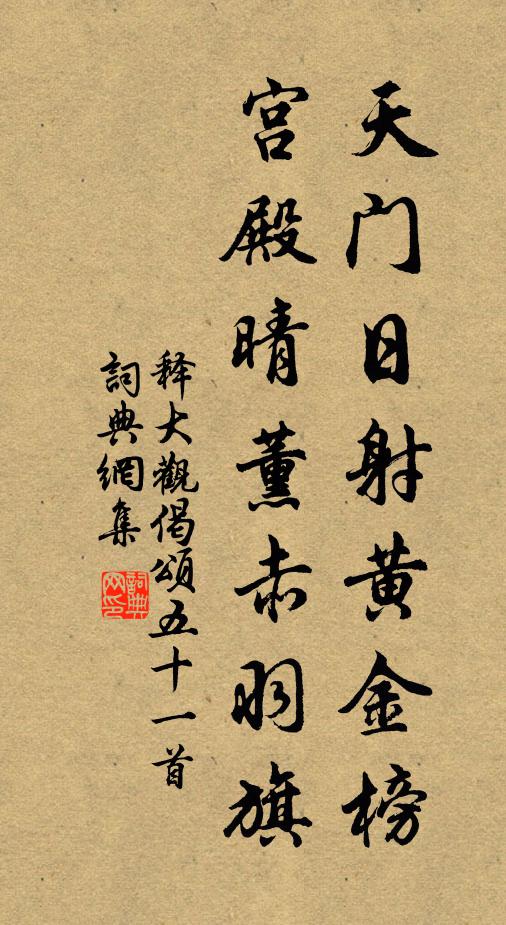 天门日射黄金榜
宫殿晴薰赤羽旗
释大觀偈頌五十一首
詞典網集
詞典网印